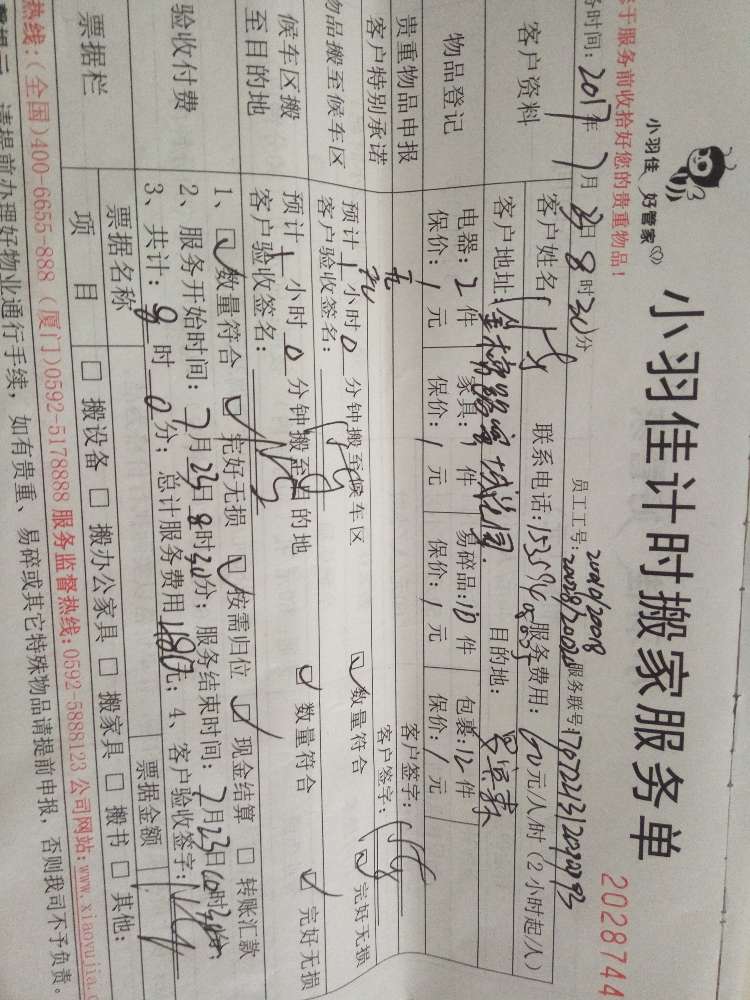 小羽佳计时搬家服务单
2028744
小羽佳 好管家
于服务前收拾好您的贵重物品！
员工工号：20010/20018
服务联号：
务时间：2017年7月23日8时30分
客户资料
客户姓名：
联系电话：
服务费用：60元/人/时（2小时起/人）
客户地址：
目的地：
物品登记
电器：2件 家具：1件 易碎品：10件 包裹：12件
保价：/元 保价：/元 保价：/元 保价：/元
贵重物品申报
客户签字：
客户特别承诺
无
客户签字：
物品搬至候车区
预计1小时0分钟搬至候车区 数量符合 完好无损
客户验收签名：
候车区搬至目的地
预计1小时0分钟搬至目的地 数量符合 完好无损
客户验收签名：
验收付费
1、数量符合 完好无损 按需归位 现金结算 转账汇款
2、服务开始时间：7月23日8时30分；服务结束时间：7月23日10时30分；
3、共计：8时0分；总计服务费用480元；4、客户验收签字：
票据栏
票据名称
票据金额
项目
搬设备 搬办公家具 搬家具 搬书 其他：
热线：（全国）400-6655-888（厦门）0592-5178888 服务监督热线：0592-5888123 公司网站：www.xiaoyujia.c
请提前办理好物业通行手续，如有贵重、易碎或其它特殊物品请提前申报，否则我司不予负责。